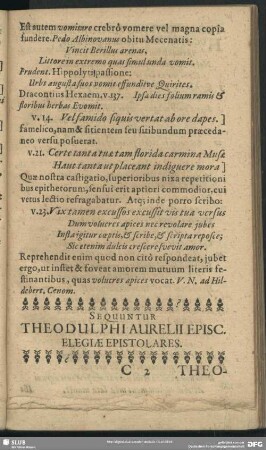 Est autem vomitare crebrò vomere vel magna copia
fundere. Pedo Albinovanus obitu Mecenatis:
Vincit Berillus arenas,
Littorem extremo quas simul unda vomit.
Prudent. Hippolyti passione:
Urbs augusta suos vomit effunditve Quirites.
Dracontius Hexaem. v. 137. Ipsa dies folium ramis &
floribus herbas Evomit.
v. 14. Vel famido siquis vertat ab ore dapes. ]
famelico, nam & sitientem seu sitibundum præceda-
neo versu posuerat.
v. 21. Certe tanta tua tam florida carmina Musæ
Haut tantæ ut placeant indiguere mora ]
Quæ nostra castigatio, superioribus nixa repetitioni
bus epithetorum, sensui erit aptior commodior. cui
vetus lectio refragabatur. Atq; inde porro scribo:
v. 23. Vix tamen excussos excussit vis tua versus
Dum volucres apices nec revolare jubes
Instatigitur captis, & scribe, & scripta reposce;
Sic etenim dulcis crescere suevit amor.
Reprehendit enim quod non citò respondeat, jubet
ergo, ut instet & foveat amorem mutuum literis fe-
stinantibus, quas volucres apices vocat. V. N. ad Hil-
debert. Cenom.
SEQUUNTUR
THEODULPHI AURELII EPISC.
ELEGIÆ EPISTOLARES.
C 2 THEO-
SLUB